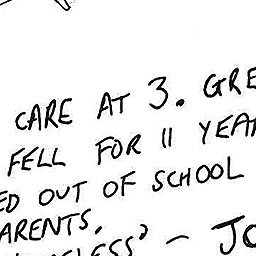 CARE AT 3. GRE
FELL FOR 11 YEA
ED OUT OF SCHOOL
ARENTS.
ELESS' - JO